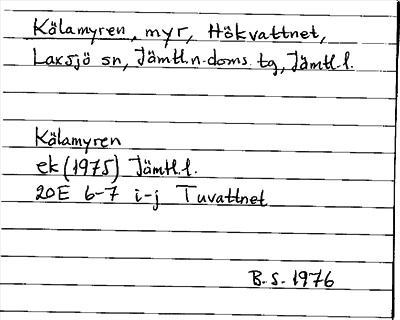 Kälamyren, myr, Hökvattnet,
Laxsjö sn, Jämtl.n.doms.tg, Jämtl.l.
Kälamyren
ek (1975) Jämtl.l.
20E 6-7 i-j Tuvattnet
B.S. 1976